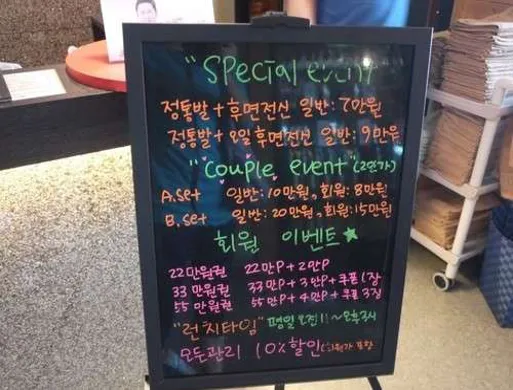 "Special event
정통발+후면전신 일반:7만원
정통발+오일후면전신 일반:9만원
"couple event" (2인가)
A.set 일반:10만원, 회원:8만원
B.set 일반:20만원, 회원:15만원
회원 이벤트★
22만원권 22만P+2만P
33만원권 33만P+3만P+쿠폰1장
55만원권 55만P+4만P+쿠폰3장
"런치타임" 평일오전11~오후3시
모든관리 10%할인(회원가 포함